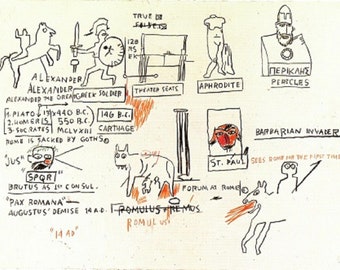 TRUE
ALEXANDER
ALEXANDER
ALEXANDER THE GREAT
GREEK SOLDIER
THEATER SEATS
APHRODITE
ΠΕΡΙΚΛΗΣ
PERICLES
1. PLATO
2. HOMERIS
3. SOCRATES
440 B.C.
550 B.C.
MCLVXIII
146 B.C.
CARTHAGE
ROME IS SACKED BY GOTHS
"JUS"
SPQR
BRUTUS AS 1ST CONSUL.
"PAX ROMANA"
AUGUSTUS' DEMISE 14 A.D.
"14 AD"
ROMULUS REMOS
ROMULUS
FORUM AT ROME
ST. PAUL
BARBARIAN INVADER
SEES ROME FOR THE FIRST TIME